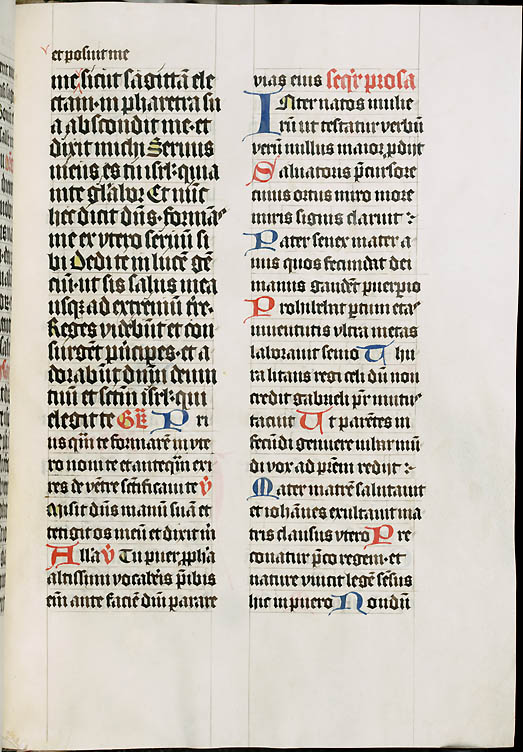 et posuit me
me sicut sagittā ele
ctam · in pharetra su
a abscondit me · et
dixit michi Seruus
meus es tu isrl' · quia
in te gl'abor Et nūc
hec dicit dn̄s · formās
me ex vtero seruū si
bi Dedi te in lucē gē
ciū · ut sis salus mea
usq; ad extremū t're ·
Reges videbūt et con
surgēt prīcipes · et a
dorabūt dnm̄ deum
tuū et sctm̄ isrl' · qui
elegit te Gr̄ Pri
us qm̄ te formarē in vte
ro noui te et anteqm̄ exi
res de vētre sctīficaui te v̄
Misit dn̄s manū suā et
tetigit os meū et dixit m̄
Alla v̄ Tu puer ppha
altissimi vocaberis p̄ibis
em̄ ante faciē dnī parare
vias eius seqr' prosa
Inter natos mulie
rū ut testatur verbū
verū nullus maior pdijt
Saluatoris p̄cursore
cuius ortus miro more
miris signis claruit :
Pater senex mater a
nus quos fecundat dei
manus gaudēt puerperio
Prohibebat partum etas
iuuentutis vltra metas
laborauit senio Thu
ra litans regi celi dū non
credit gabrieli pr̄ mutus
tacuit At parētes in
fecūdi genuere iubar mūdi
di vox ad prēm redijt :
Mater matrē salutauit
et iohānes exultauit ma
tris clausus vtero Pre
conatur p̄co regem · et
nature vincit legē sesus
hic in puero Nondū